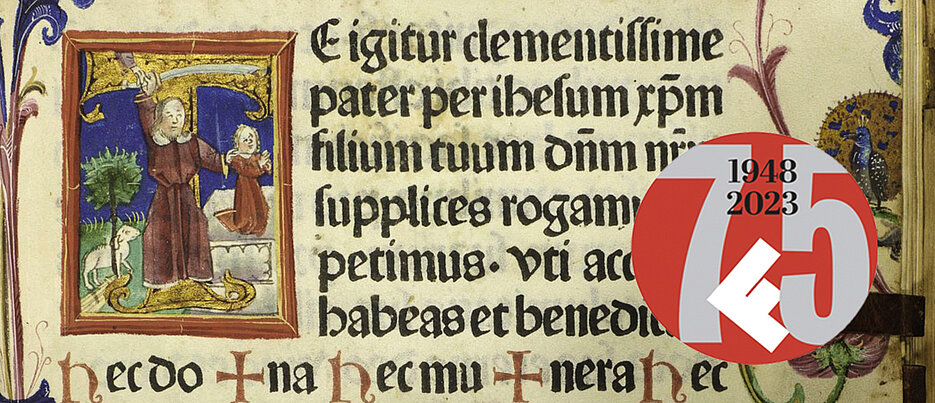 TE igitur clementiſſime
pater per iheſum xp̄m
filium tuum dn̄m nr̄
ſupplices rogamu
petimus. vti acc
habeas et benedi
hec do + na hec mu + nera hec
1948
2023
75